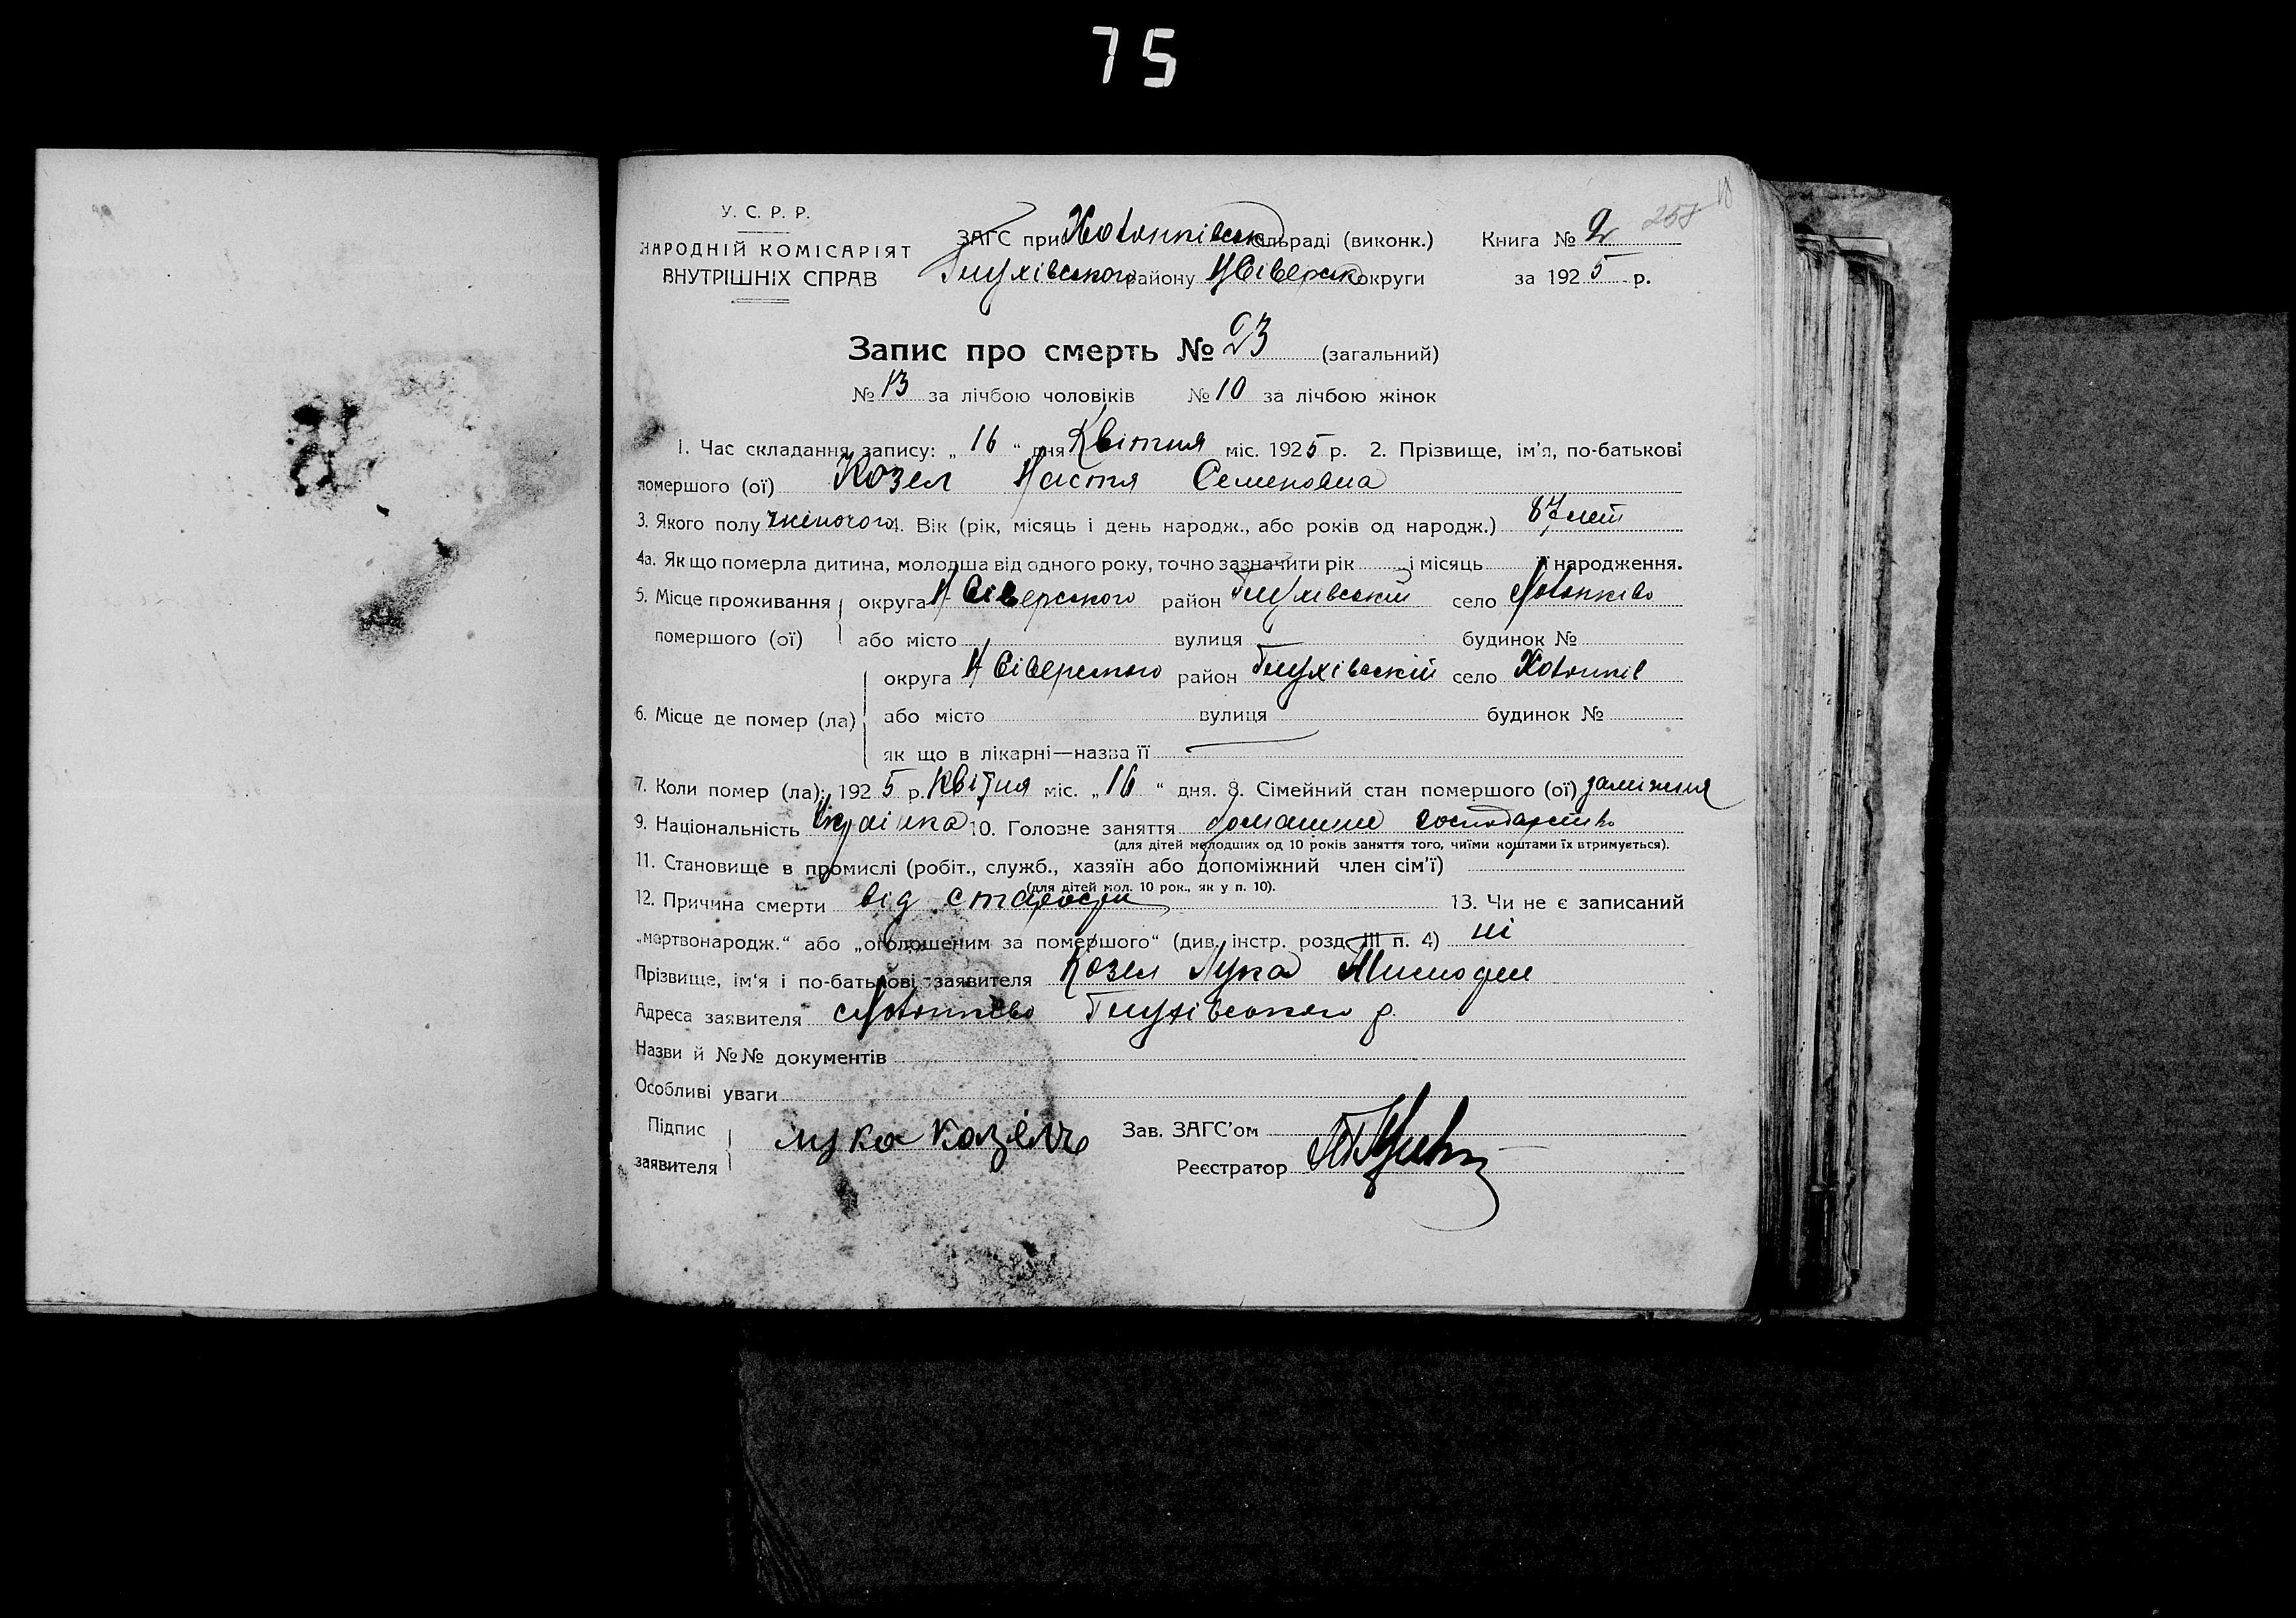 75
258
У. С. Р. Р.
НАРОДНІЙ КОМІСАРІЯТ
ВНУТРІШНІХ СПРАВ
ЗАГС при сільраді (виконк.) Книга № 2
Глухівского району Н Сіверск округи за 1925 р.
Запис про смерть № 23 (загальний)
№ 13 за лічбою чоловіків № 10 за лічбою жінок
1. Час складання запису: „ 16 “ дня Квітня міс. 1925 р. 2. Прізвище, ім'я, по-батькові
помершого (ої) Козел Настя Семеновна
3. Якого полу жіночого 4. Вік (рік, місяць і день народж., або років од народж.) 87 лет
4а. Як що померла дитина, молодша від одного року, точно зазначити рік і місяць її народження.
5. Місце проживання округа Н Сіверского район Глухівский село
помершого (ої) або місто вулиця будинок №
округа Н Сіверского район Глухівскій село
6. Місце де помер (ла) або місто вулиця будинок №
як що в лікарні—назва її
7. Коли помер (ла): 1925 р. Квітня міс. „ 16 “ дня. 8. Сімейний стан помершого (ої) заміжня
9. Національність Украінка 10. Головче заняття домашне господарство
(для дітей молодших од 10 років заняття того, чиїми коштами їх втримується).
11. Становище в промислі (робіт., служб., хазяїн або допоміжний член сім'ї)
(для дітей мол. 10 рок., як у п. 10).
12. Причина смерти від старости 13. Чи не є записаний
„мертвонародж.“ або „оголошеним за помершого“ (див. інстр. розд. III п. 4) ні
Прізвище, ім'я і по-батькові заявителя Козел Лука
Адреса заявителя Глухівского р.
Назви й №№ документів
Особливі уваги
Підпис
заявителя лука козель Зав. ЗАГС'ом
Реєстратор